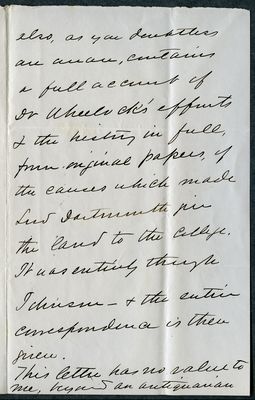 also, as you doubtless
are aware, contains
a full account of
Dr Wheelock's efforts
& the history in full,
from original papers, of
the causes which made
Lord Dartmouth give
the land to the College.
It was entirely through
Johnson – & the entire
correspondence is then
given.
This letter has no value to
me, beyond an antiquarian